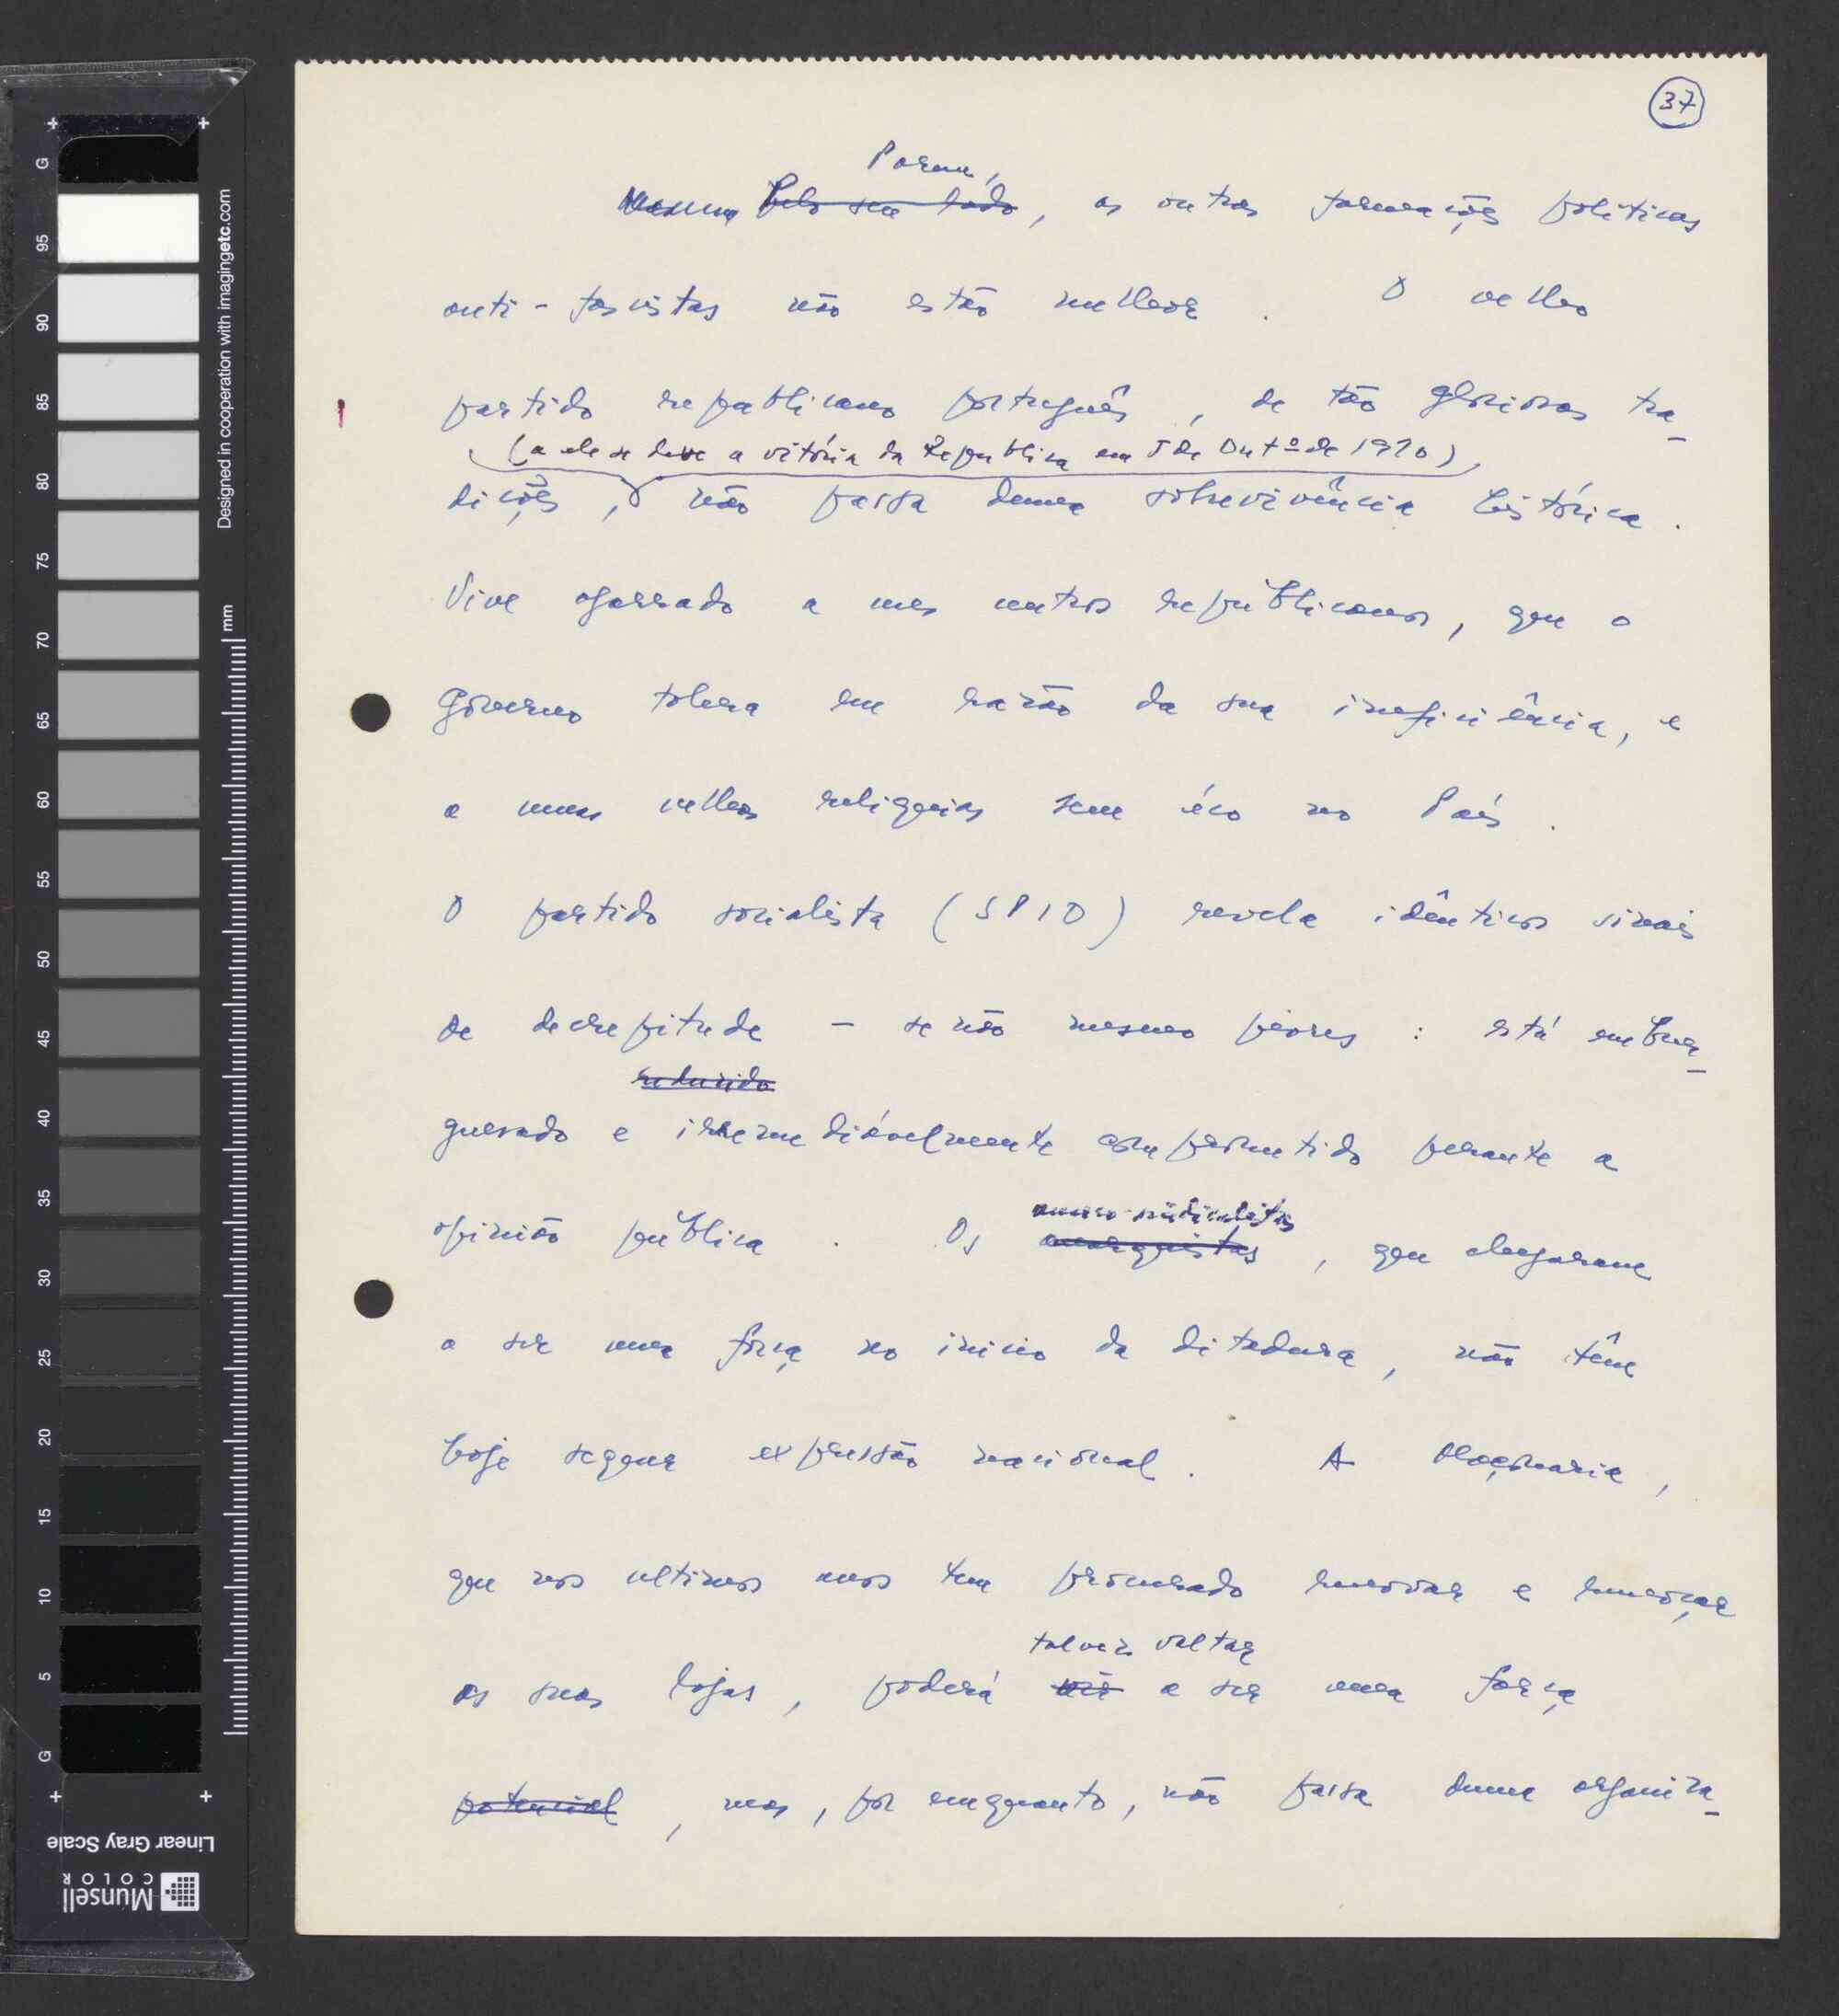 37
Porem,
Pelo seu lado, as outras formações políticas
anti-fascistas não estão melhor. O velho
partido republicano português, de tão gloriosas tra-
(a ele se deve a vitória da República em 5 de Outº de 1910),
dições, não passa duma sobrevivência histórica.
Vive agarrado a uns centros republicanos, que o
Governo tolera em razão da sua ineficiência, e
a umas velhas reliquias sem éco no País.
O partido socialista (SPIO) revela idênticos sinais
de decrepitude - se não mesmo piores: está embur-
reduzido
guesado e irremediávelmente comprometido perante a
opinião pública. Os
anarco-sindicalistas
anarquistas, que chegaram
a ser uma fôrça no inicio da ditadura, não têm
hoje sequer expressão nacional. A Maçonaria,
que nos ultimos anos tem procurado renovar e
as suas lojas, poderá
talvez voltar
vir a ser uma força
potencial, mas, por emquanto, não passa duma organiza-
G
95
90
85
80
75
70
65
60
55
50
45
40
35
30
25
20
15
10
5
G
Designed in cooperation with imagingetc.com
mm
Linear Gray Scale
Munsell
COLOR